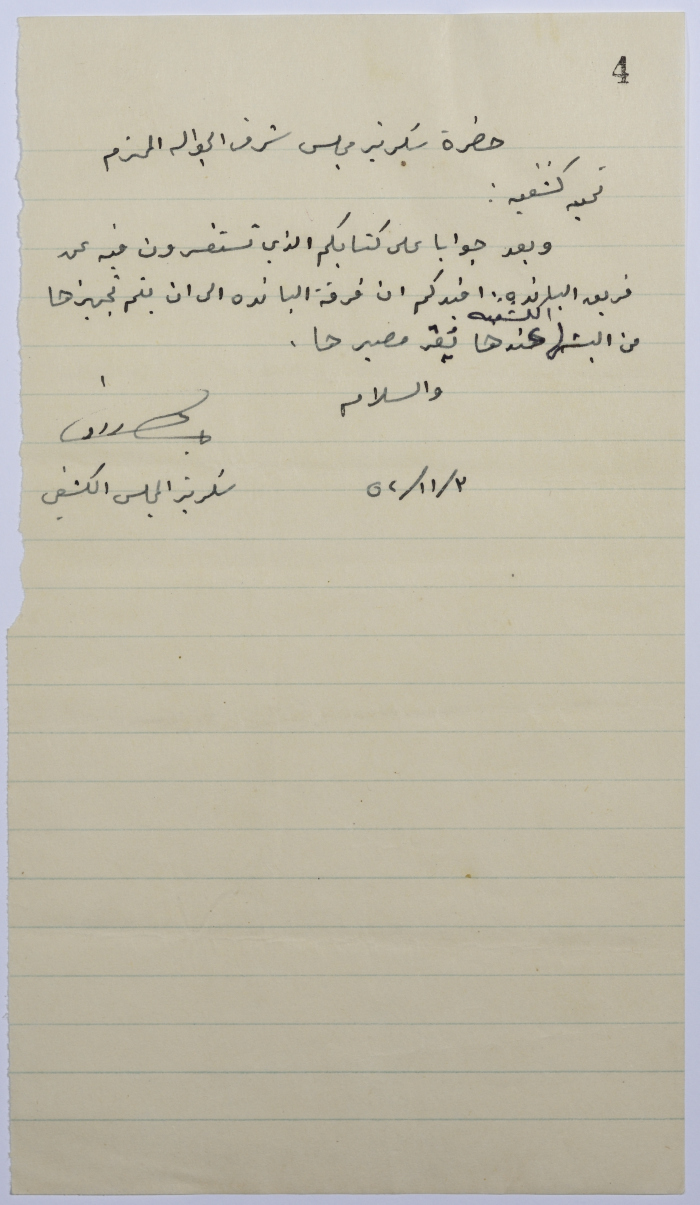 4
حضرة سكرتير مجلس شرف الجواله المحترم
تحيه كشفيه :
وبعد جوابا على كتابكم الذي تستفسرون فيه عن
فريق الباندة : افيدكم ان فرقة الباندة الى ان يتم تجهيزها
الكشفيه
من عندها يقر مصيرها .
والسلام
٥٢/١١/٣
سكرتير المجلس الكشفي